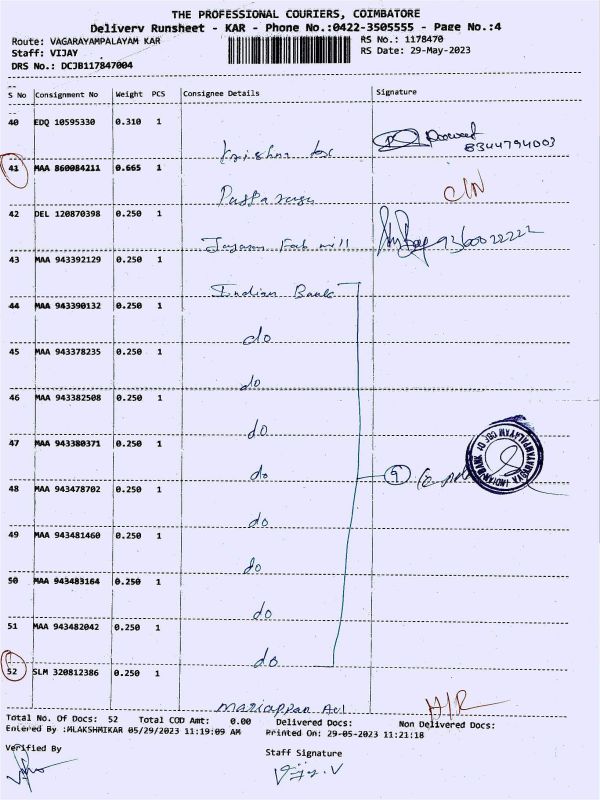 THE PROFESSIONAL COURIERS, COIMBATORE
Delivery Runsheet - KAR - Phone No.:0422-3505555 - Page No.:4
Route: VAGARAYAMPALAYAM KAR RS No.: 1178470
Staff: VIJAY RS Date: 29-May-2023
DRS No.: DCJB117847004
S No Consignment No Weight PCS Consignee Details Signature
40 EDQ 10595330 0.310 1
Krishna 8344794003
41 MAA 860084211 0.665 1
C/N
42 DEL 120870398 0.250 1
9360022222
43 MAA 943392129 0.250 1
Indian Bank
44 MAA 943390132 0.250 1
do
45 MAA 943378235 0.250 1
do
46 MAA 943382508 0.250 1
do
47 MAA 943380371 0.250 1
do 9
48 MAA 943478702 0.250 1
do
49 MAA 943481460 0.250 1
do
50 MAA 943483164 0.250 1
do
51 MAA 943482042 0.250 1
do
52 SLM 320812386 0.250 1
Mariappan
Total No. Of Docs: 52 Total COD Amt: 0.00 Delivered Docs: Non Delivered Docs:
Entered By :MLAKSHMIKAR 05/29/2023 11:19:09 AM Printed On: 29-05-2023 11:21:18
Verified By Staff Signature
Vijay.V